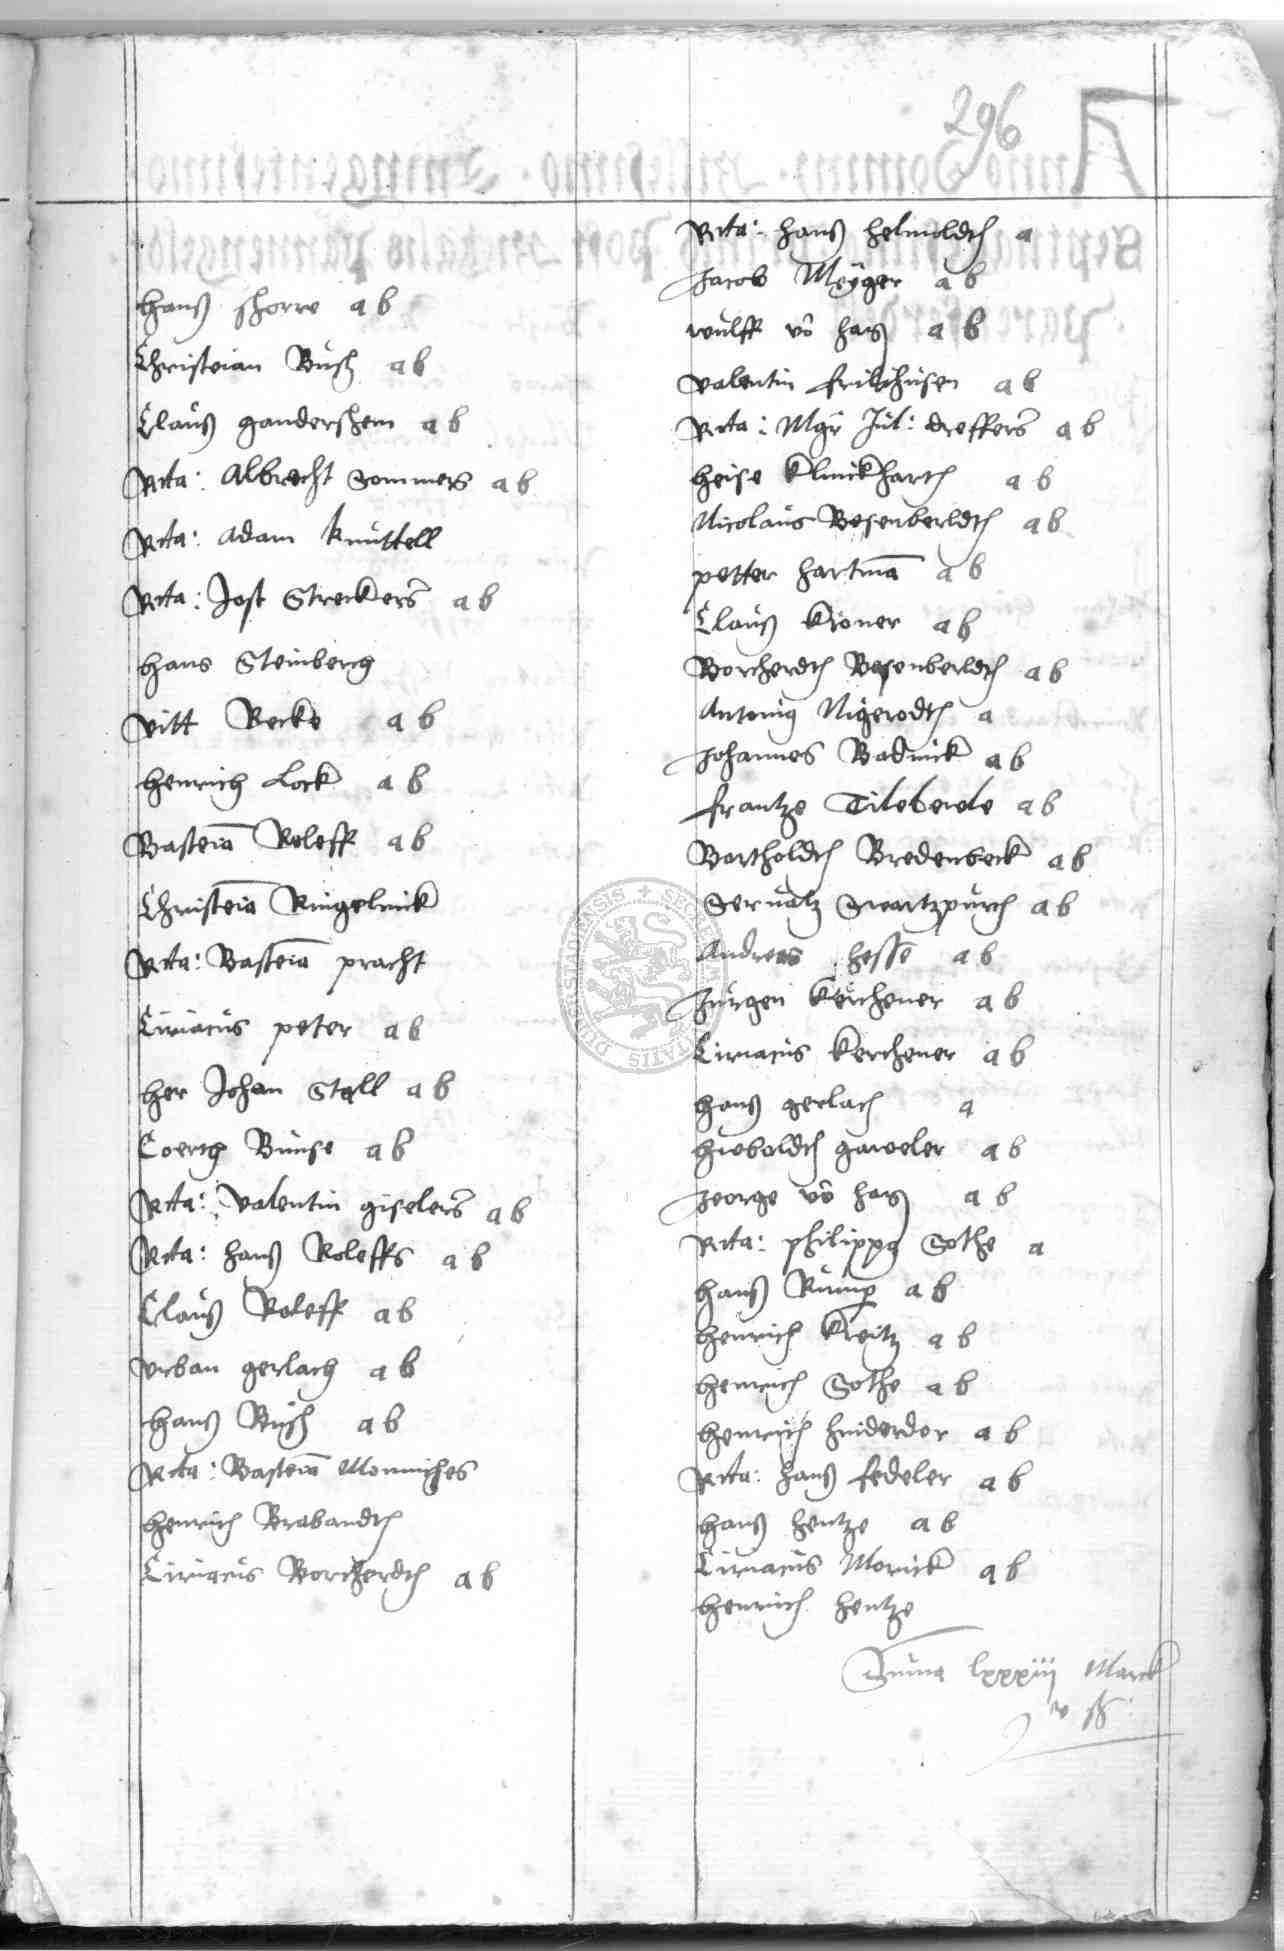 296
Hanß Shorre a b
Christian Bush a b
Clauß Gandershem a b
Rcta: Albrecht Sommers a b
Rcta: Adam Knuttell
Rcta: Jost Streckers a b
Hans Steinberch
Vitt Becke a b
Henrich Lock a b
Bastein Roleff a b
Christein Ringelnick
Rcta: Bastein Pracht
Ciriacus Peter a b
Her Johan Stall a b
Coerth Bunse a b
Rcta: Valentin Giselers a b
Rcta: Hanß Roleffs a b
Clauß Roleff a b
Urban Gerlach a b
Hanß Bush a b
Rcta: Bastein Monniches
Henrich Brabandth
Ciriacus Borcherdth a b
Rcta: Hanß Helmoldth a
Jacob Meyger a b
Wulff vo Hag a b
Valentin Frilhusen a b
Rcta: Mgr Jul: Dreffers a b
Heise Klinckharth a b
Nicolaus Besenberldth a b
Petter Hartma a b
Clauß Kroner a b
Borcherdth Besenberldth a b
Antonig Nigerodth a
Johannes Badnick a b
Frantze Tileberle a b
Bartholdth Bredenbeck a b
Servatz Swartzpurch a b
Andreas Hesse a b
Jurgen Kerchener a b
Ciriacus Kerchener a b
Hanß Gerlach a
Hieboldth Gaweler a b
Jeorge vo Hag a b
Rcta: Philippg Sothe a
Hanß Rump a b
Henrich Kreitz a b
Henrich Sothe a b
Henrich Hinderdor a b
Rcta: Hanß Fedeler a b
Hanß Hentze a b
Ciriacus Monick a b
Henrich Hentze
Suma lxxxiij Marck
v ß